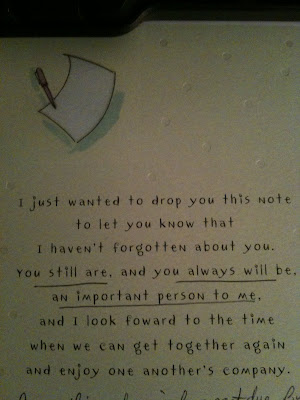 I just wanted to drop you this note
to let you know that
I haven't forgotten about you.
You still are, and you always will be,
an important person to me,
and I look foward to the time
when we can get together again
and enjoy one another's company.